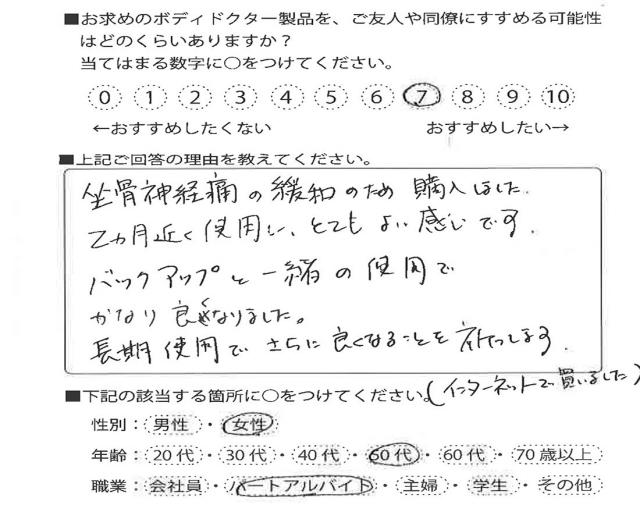 ■お求めのボディドクター製品を、ご友人や同僚にすすめる可能性
はどのくらいありますか？
当てはまる数字に○をつけてください。
0 1 2 3 4 5 6 7 8 9 10
←おすすめしたくない おすすめしたい→
■上記ご回答の理由を教えてください。
坐骨神経痛の緩和のため購入しました.
2カ月近く使用し、とてもよい感じです.
バックアップと一緒の使用で
かなり良くなりました。
長期使用でさらに良くなることを祈ってします.
■下記の該当する箇所に○をつけてください。(インターネットで買いました)
性別：男性・女性
年齢：20代・30代・40代・60代・60代・70歳以上
職業：会社員・パートアルバイト・主婦・学生・その他